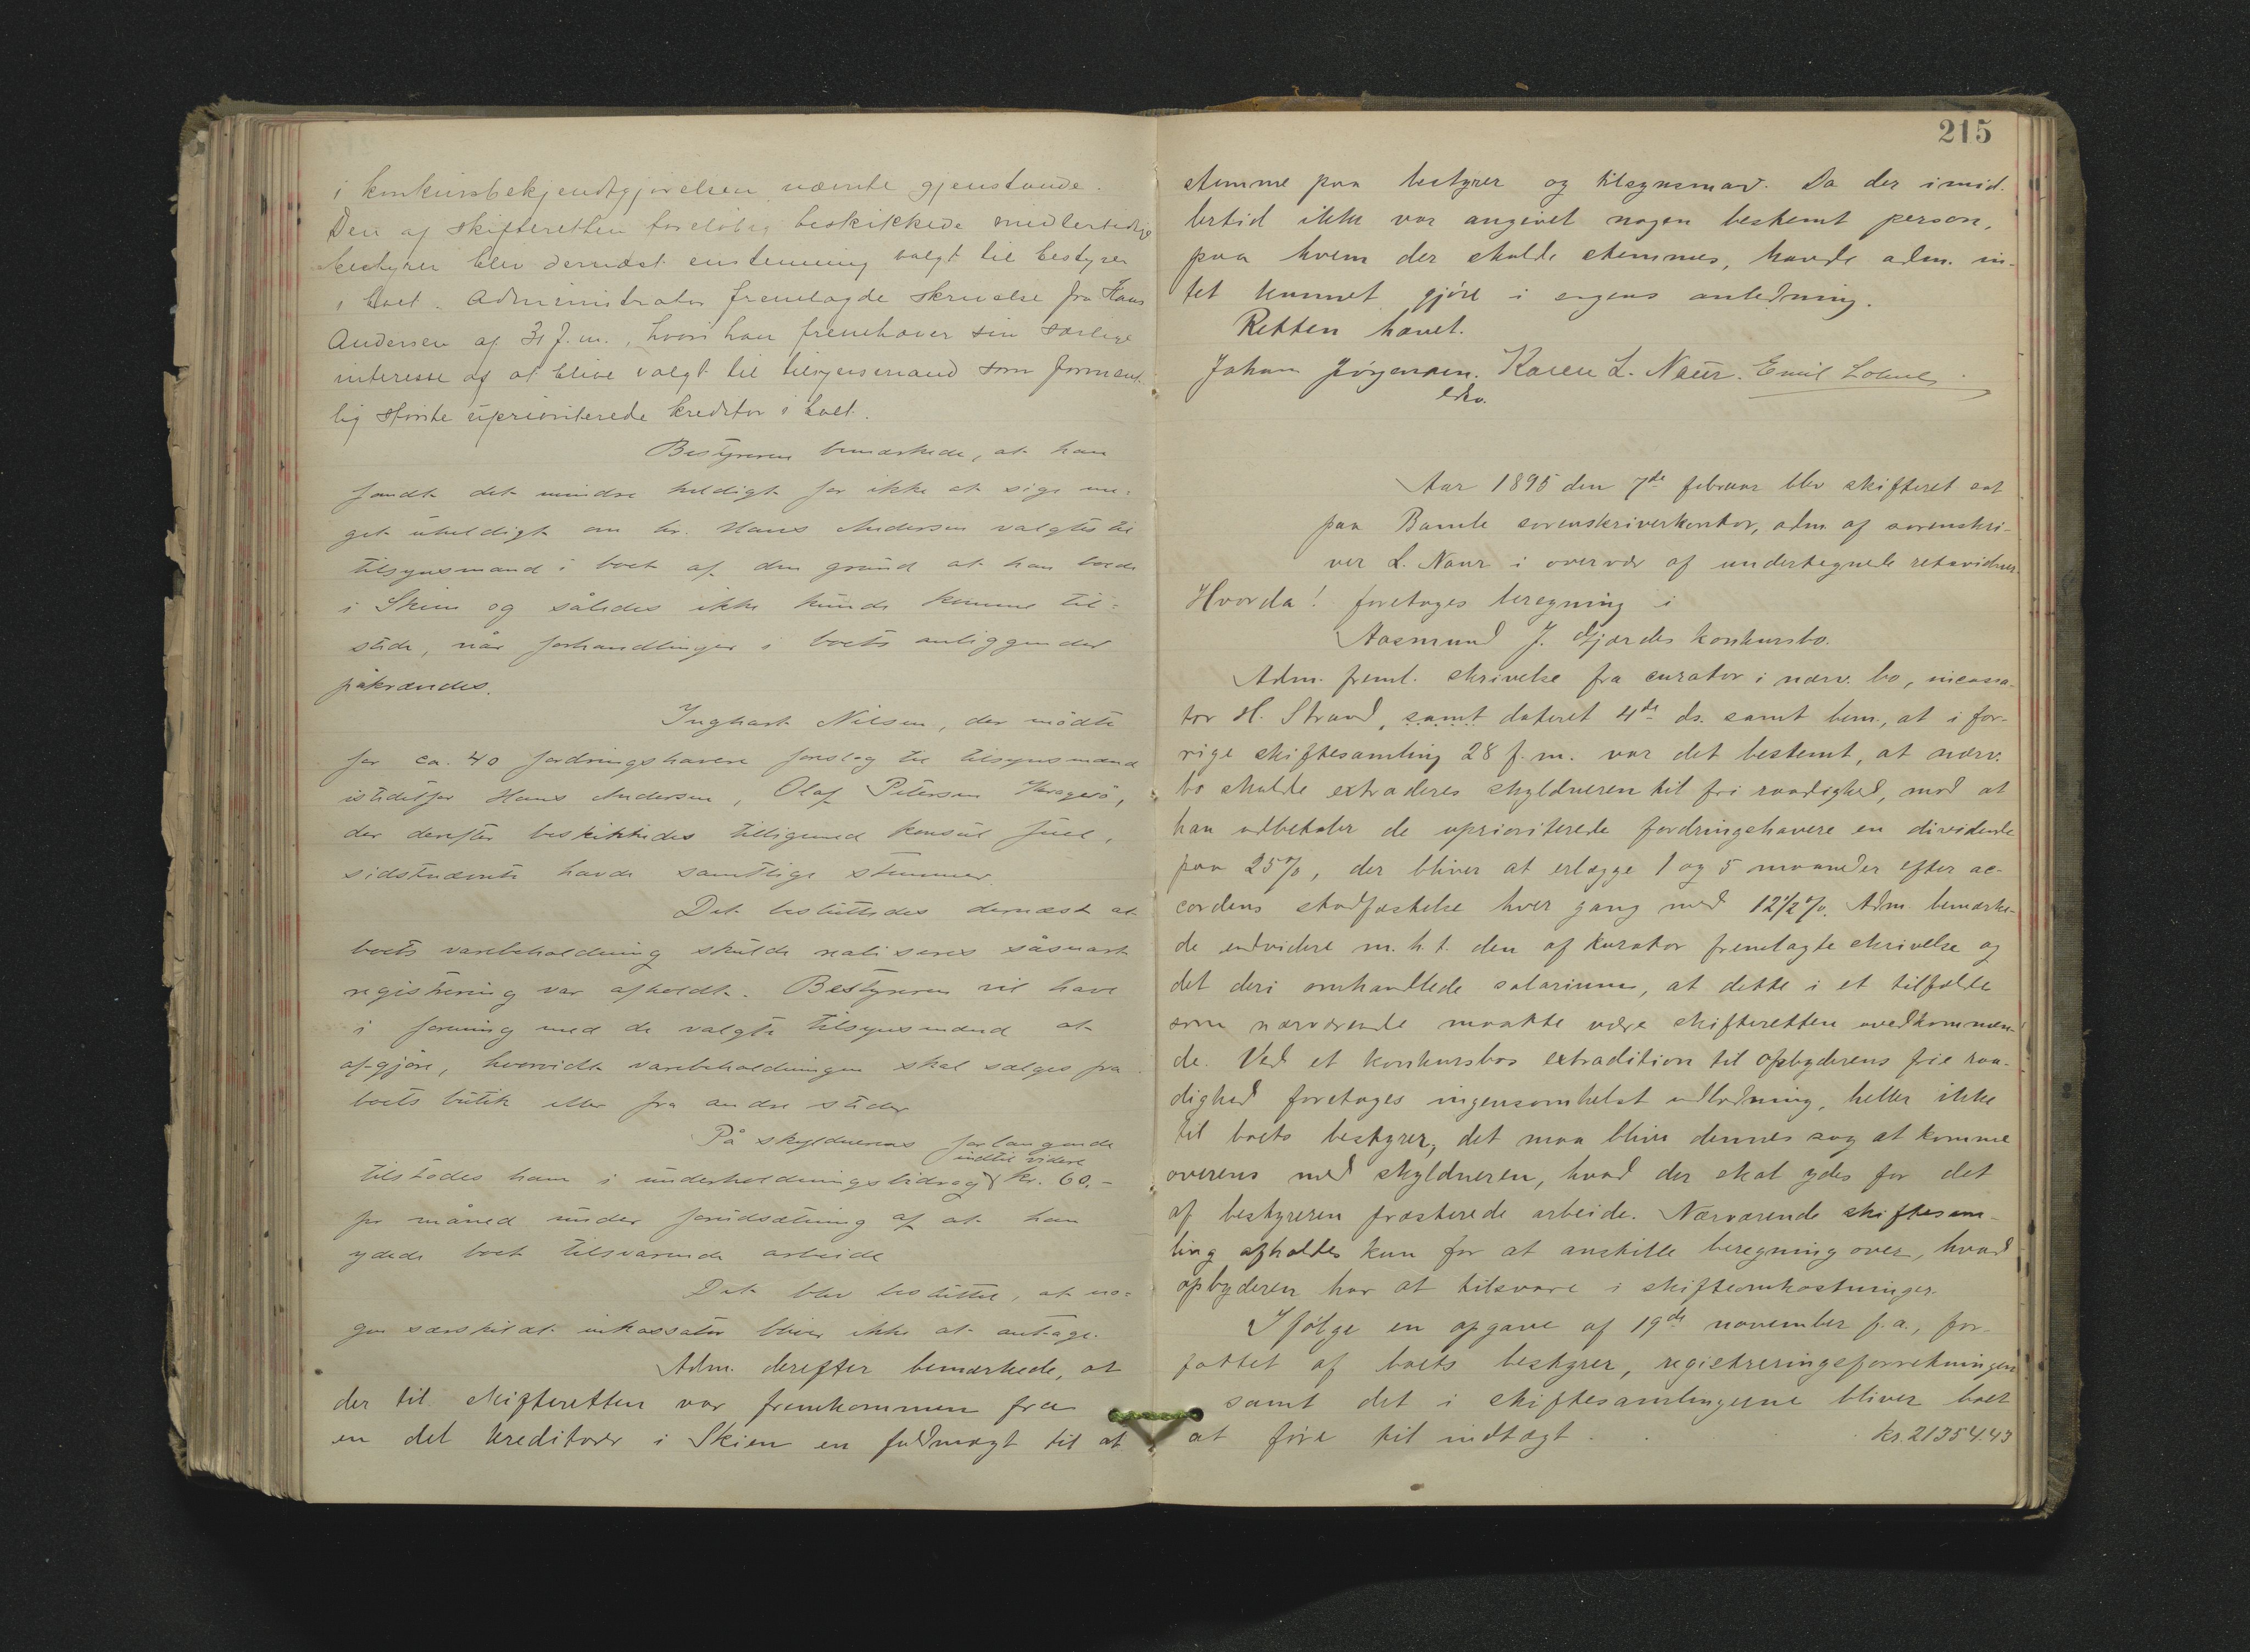 i konkursbekjendtgjørelsen nævnte gjenstande.
Den af skifteretten foreløbig beskikkede midlertidige
bestyrer blev dernæst enstemmig valgt til bestyrer
i boet. Administrator fremlagde skrivelse fra Hans
Andersen af 31 f.m., hvori han fremhæver sin særlige
interesse af at blive valgt til tilsynsmand som forment-
lig største uprioriterede kreditor i boet.
Bestyreren bemærkede, at han
fandt det mindre heldigt for ikke at sige me-
get uheldigt om hr. Hans Andersen valgtes til
tilsynsmand i boet af den grund at han boede
i Skien og således ikke kunde komme til-
stede, når forhandlinger i boets anliggender
påkrævdes.
Inghart Nilsen, der mødte
for ca. 40 fordringshavere foreslog til tilsynsmænd
istedetfor Hans Andersen, Olaf Petersen Kragerø,
der derefter beskikkedes tilligemed konsul Juel,
sidstnævnte havde samtlige stemmer.
Det besluttedes dernæst at
boets varebeholdning skulde realiseres såsnart
registrering var afholdt. Bestyreren vil have
i forening med de valgte tilsynsmænd at
afgjøre, hvorvidt varebeholdningen skal sælges fra
boets butik eller fra andre steder
På skyldnerens forlangende
indtil videre
tilstodes ham i underholdningsbidrag kr. 60.-
pr måned under forudsætning af at han
ydede boet tilsvarende arbeide
Det blev besluttet, at no-
gen særskildt inkassator bliver ikke at antage.
Adm. derefter bemærkede, at
der til skifteretten var fremkommen fra
en del kreditorer i Skien en fuldmagt til at
215
stemme paa bestyrer og tilsynsmænd. Da der imid-
lertid ikke var angivet nogen bestemt person,
paa hvem der skulde stemmes, havde adm. in-
tet kunnet gjöre i sagens anledning.
Retten hævet.
Johan Jörgensen. Karen L. Naur. Emil
Aar 1895 den 7de februar blev skifteret sat
paa Bamle sorenskriverkontor, adm af sorenskri-
ver L. Naur i overvær af undertegnede retsvidner.
Hvorda! foretoges beregning i
Aasmund J. Gjærdes konkursbo.
Adm. freml. skrivelse fra curator i nærv. bo, incassa-
tor H. Strand, samt dateret 4de ds. samt bem., at i for-
rige skiftesamling 28 f.m. var det bestemt, at nærv.
bo skulde extraderes skyldneren til fri raadighed, mod at
han udbetaler de uprioriterede fordringshavere en dividende
paa 25%, der bliver at erlægge 1 og 5 maaneder efter ac-
cordens stadfæstelse hver gang med 12½%. Adm. bemærke-
de endvidere m.h.t. den af kurator fremlagte skrivelse og
det deri omhandlede salarium, at dette i et tilfælde
som nærværende maatte være skifteretten uvedkommen-
de. Ved et konkursbos extradition til opbyderens frie raa-
dighed foretages ingensomhelst udlodning, heller ikke
til boets bestyrer, det maa blive dennes sag at komme
overens med skyldneren, hvad der skal ydes for det
af bestyreren præsterede arbeide. Nærværende skiftesam-
ling afholdes kun for at anstille beregning over, hvad
opbyderen har at tilsvare i skifteomkostninger.
Ifölge en opgave af 19de november f.a., for-
fattet af boets bestyrer, registreringsforretningen
samt det i skiftesamlingerne bliver boet
at före til indtægt . . . kr. 21354.43